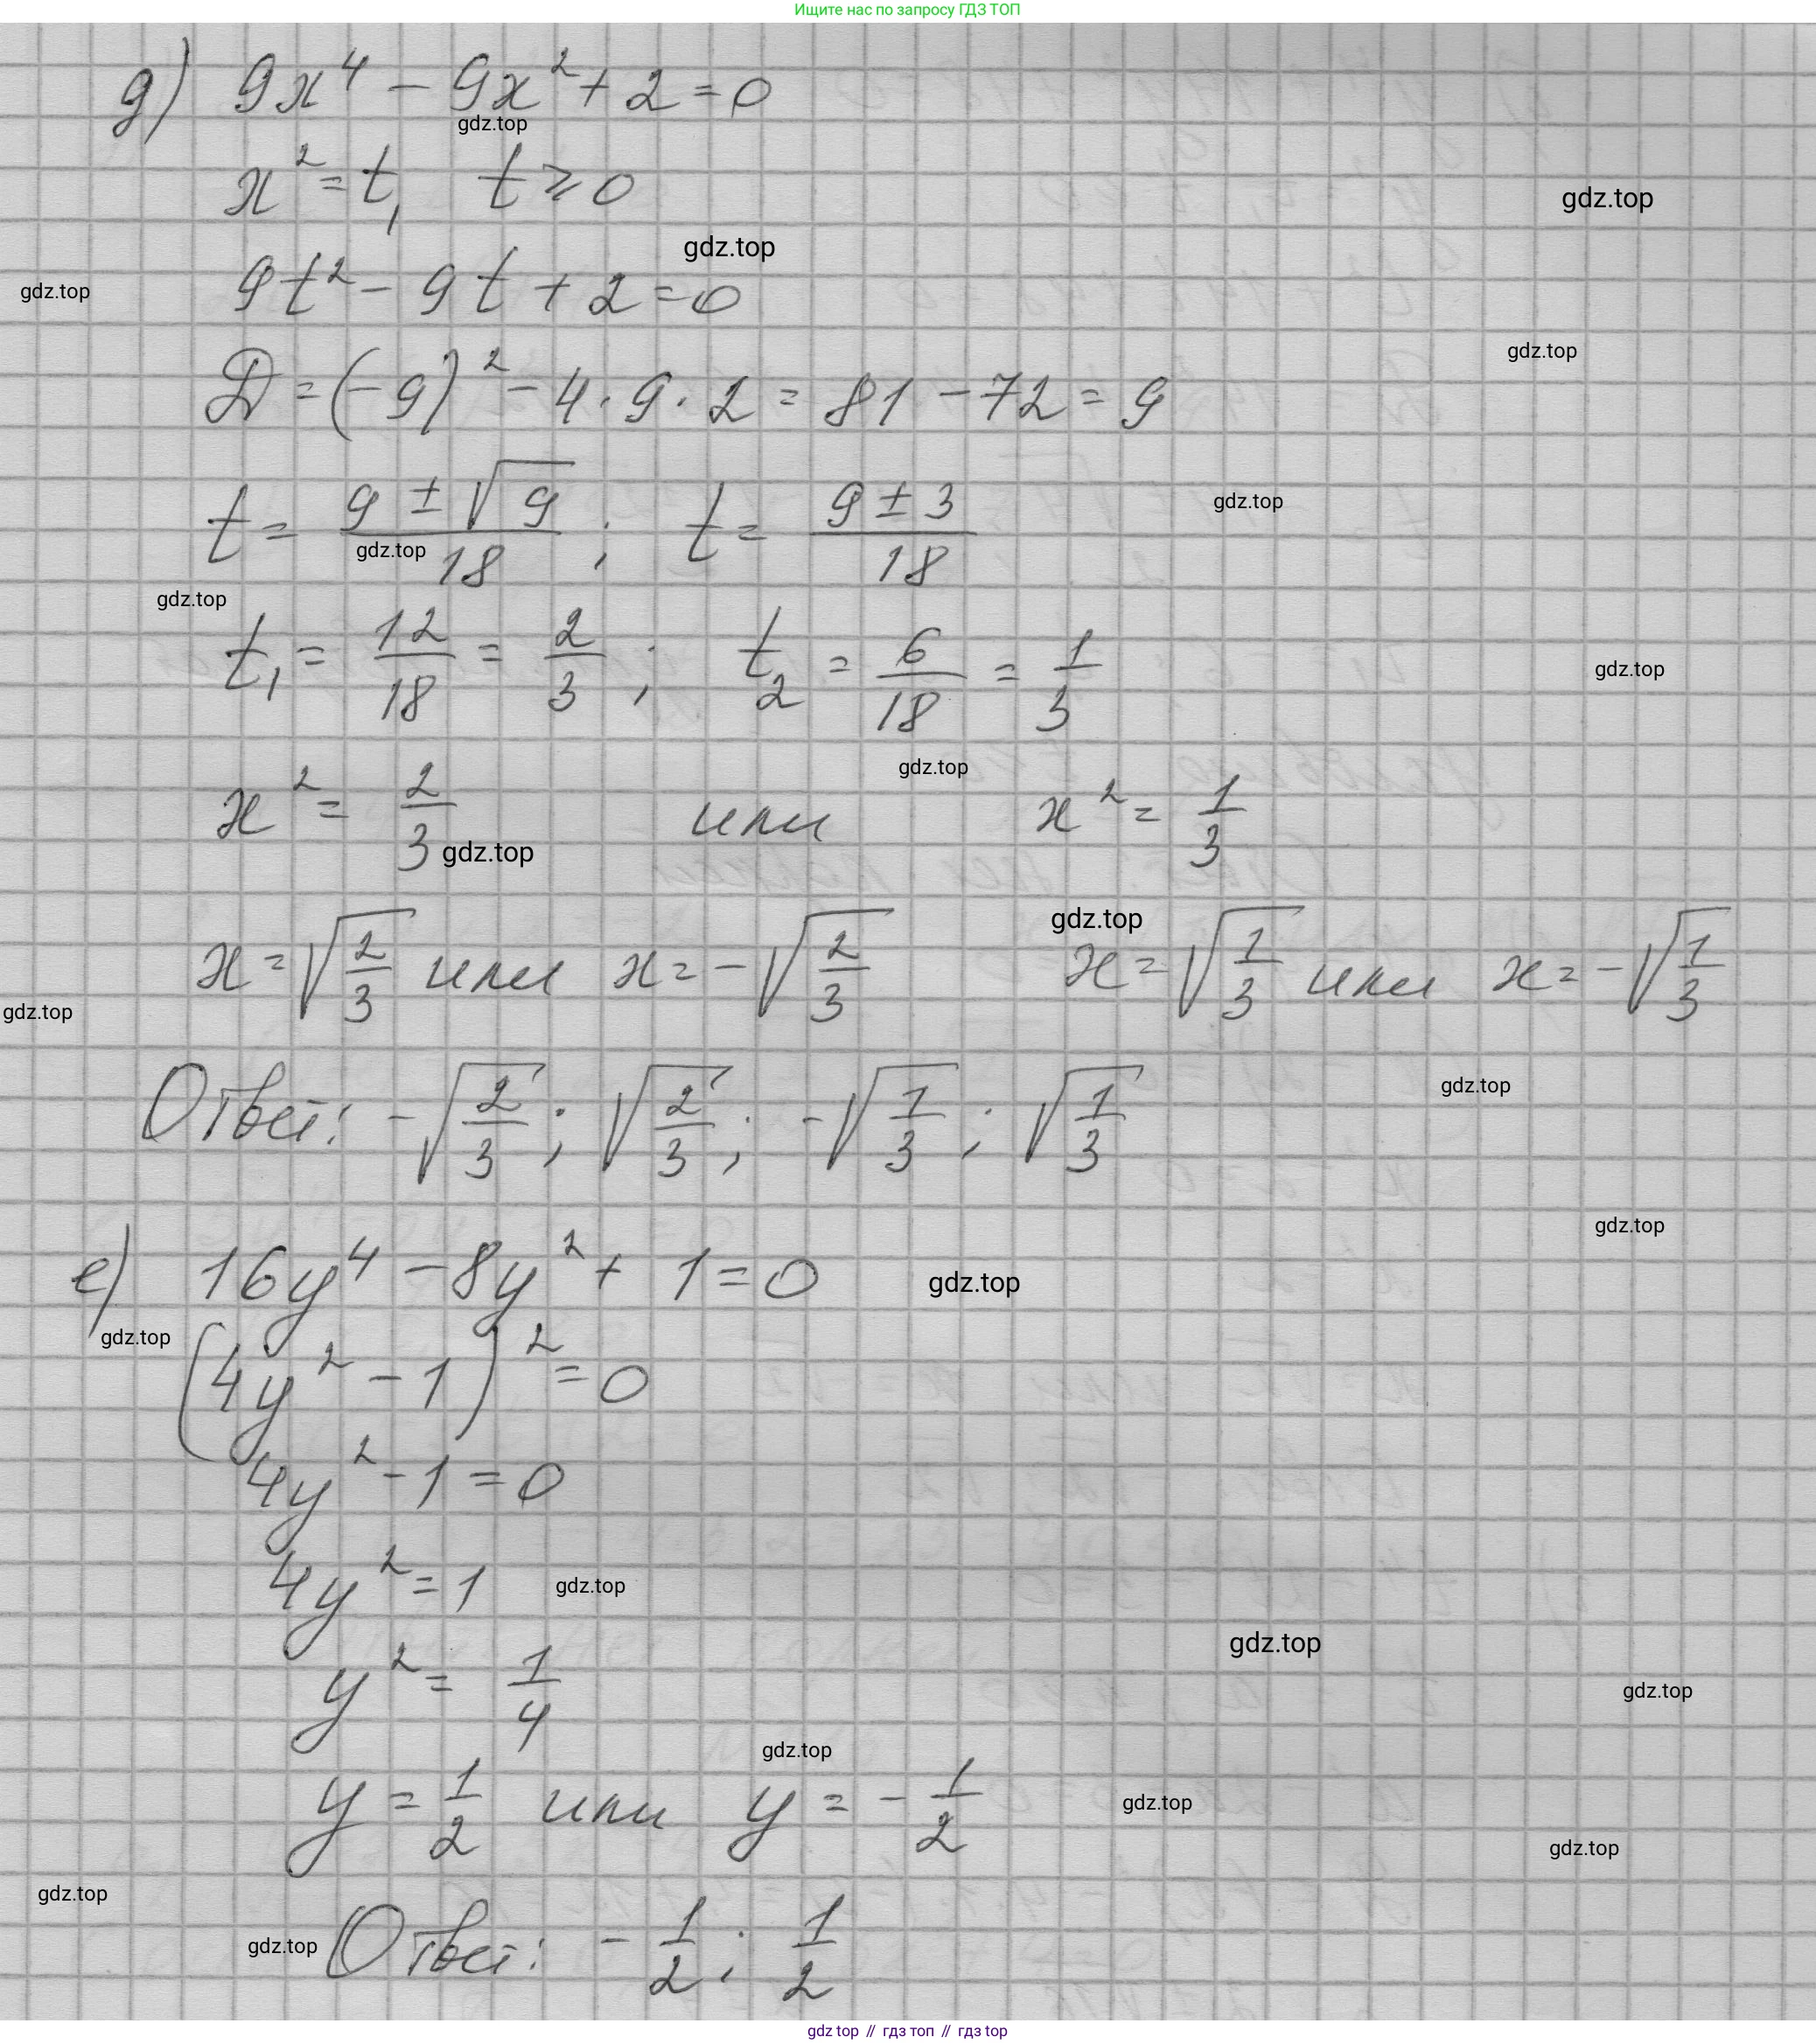 Ищите нас по запросу ГДЗ ТОП
д) 9x⁴ - 9x² + 2 = 0
gdz.top
x² = t, t ⩾ 0
gdz.top
gdz.top
9t² - 9t + 2 = 0
gdz.top
gdz.top
D = (-9)² - 4 · 9 · 2 = 81 - 72 = 9
t = (9 ± √9)/18 ; t = (9 ± 3)/18
gdz.top
gdz.top
gdz.top
t₁ = 12/18 = 2/3 ; t₂ = 6/18 = 1/3
gdz.top
gdz.top
x² = 2/3 или x² = 1/3
gdz.top
gdz.top
x = √(2/3) или x = -√(2/3) x = √(1/3) или x = -√(1/3)
gdz.top
gdz.top
Ответ: -√(2/3) ; √(2/3) ; -√(1/3) ; √(1/3)
gdz.top
е) 16y⁴ - 8y² + 1 = 0
gdz.top
gdz.top
(4y² - 1)² = 0
4y² - 1 = 0
4y² = 1
gdz.top
gdz.top
y² = 1/4
gdz.top
gdz.top
y = 1/2 или y = -1/2
gdz.top
gdz.top
gdz.top
gdz.top
Ответ: -1/2 ; 1/2
gdz top // гдз топ // гдз top